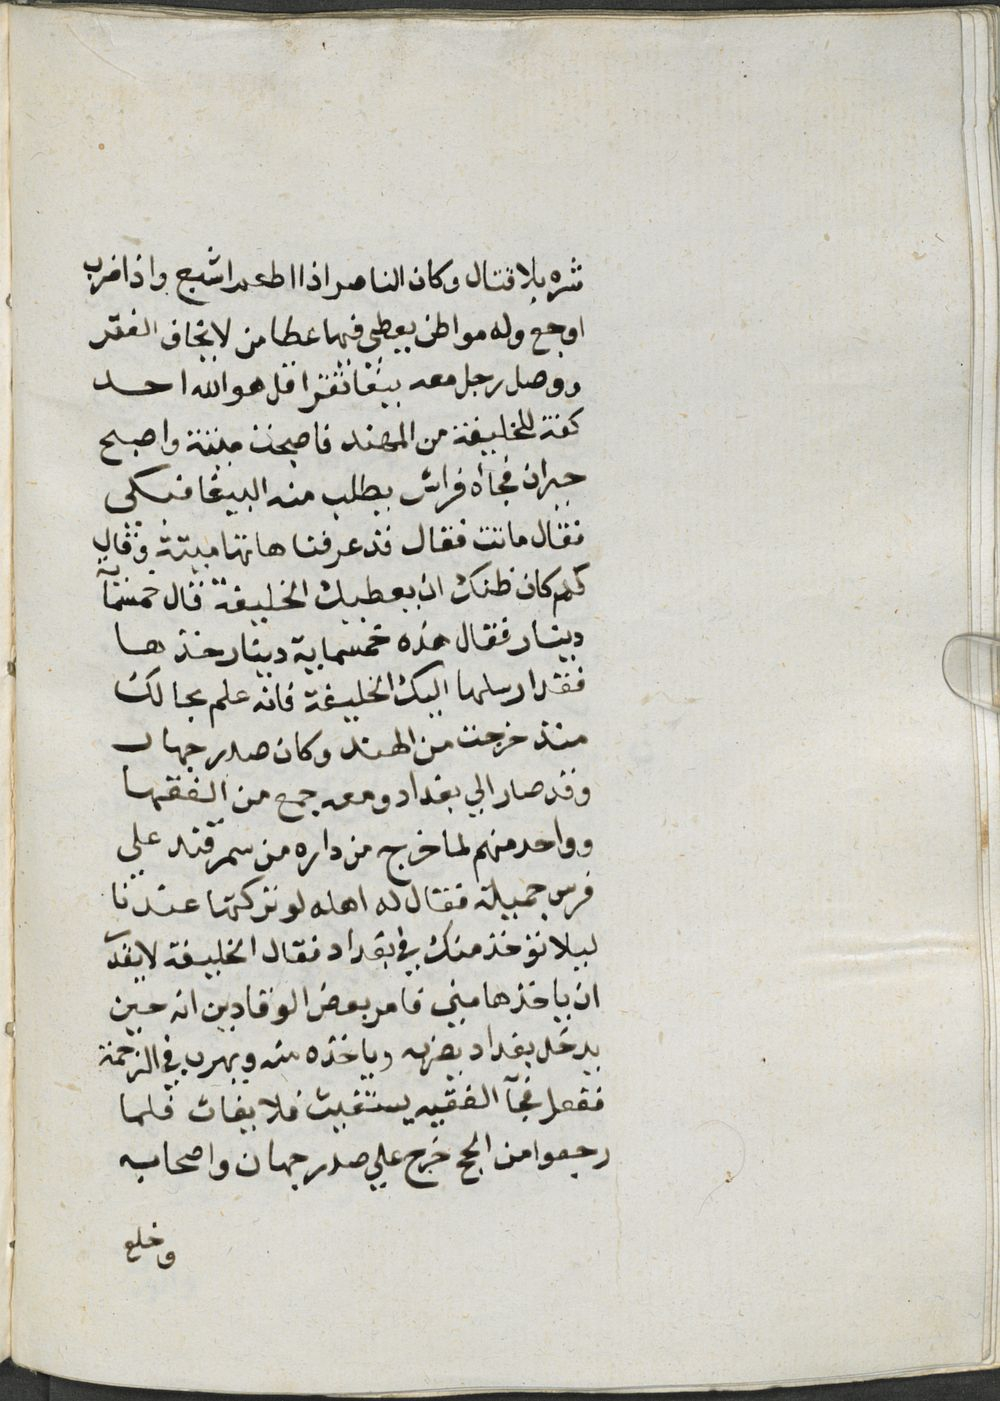 شره بلا قتال وكان الناصر اذا اطعم اشبع واذا ضرب
اوجع وله مواطن يعطي فيها عطا من لا يخاف الفقر
ووصل رجل معه ببغا تقرا قل هو الله احد
تحفة للخليفة من الهند فاصبحت ميتة واصبح
حيران فجاه فراش يطلب منه الببغا فبكى
فقال ماتت فقال قد عرفنا هاتها ميتة وقال
كم كان ظنك ان يعطيك الخليفة قال خمسمآ
دينار فقال هذه خمسماية دينار خذها
فقد ارسلها اليك الخليفة فانه علم بحالك
منذ خرجت من الهند وكان صدر جهان
وقد صار الي بغداد ومعه جمع من الفقها
وواحد منهم لما خرج من داره من سمرقند علي
فرس جميلة فقال له اهله لو تركتها عندنا
ليلا تؤخذ منك في بغداد فقال الخليفة لا يقد
ان ياخذها مني فامر بعض الوقادين انه حين
يدخل بغداد يضربه وياخذه منه ويهرب في الزحمة
ففعل فجآ الفقيه يستغيث فلا يغاث فلما
رجعوا من الحج خرج علي صدر جهان واصحابه
وخلع